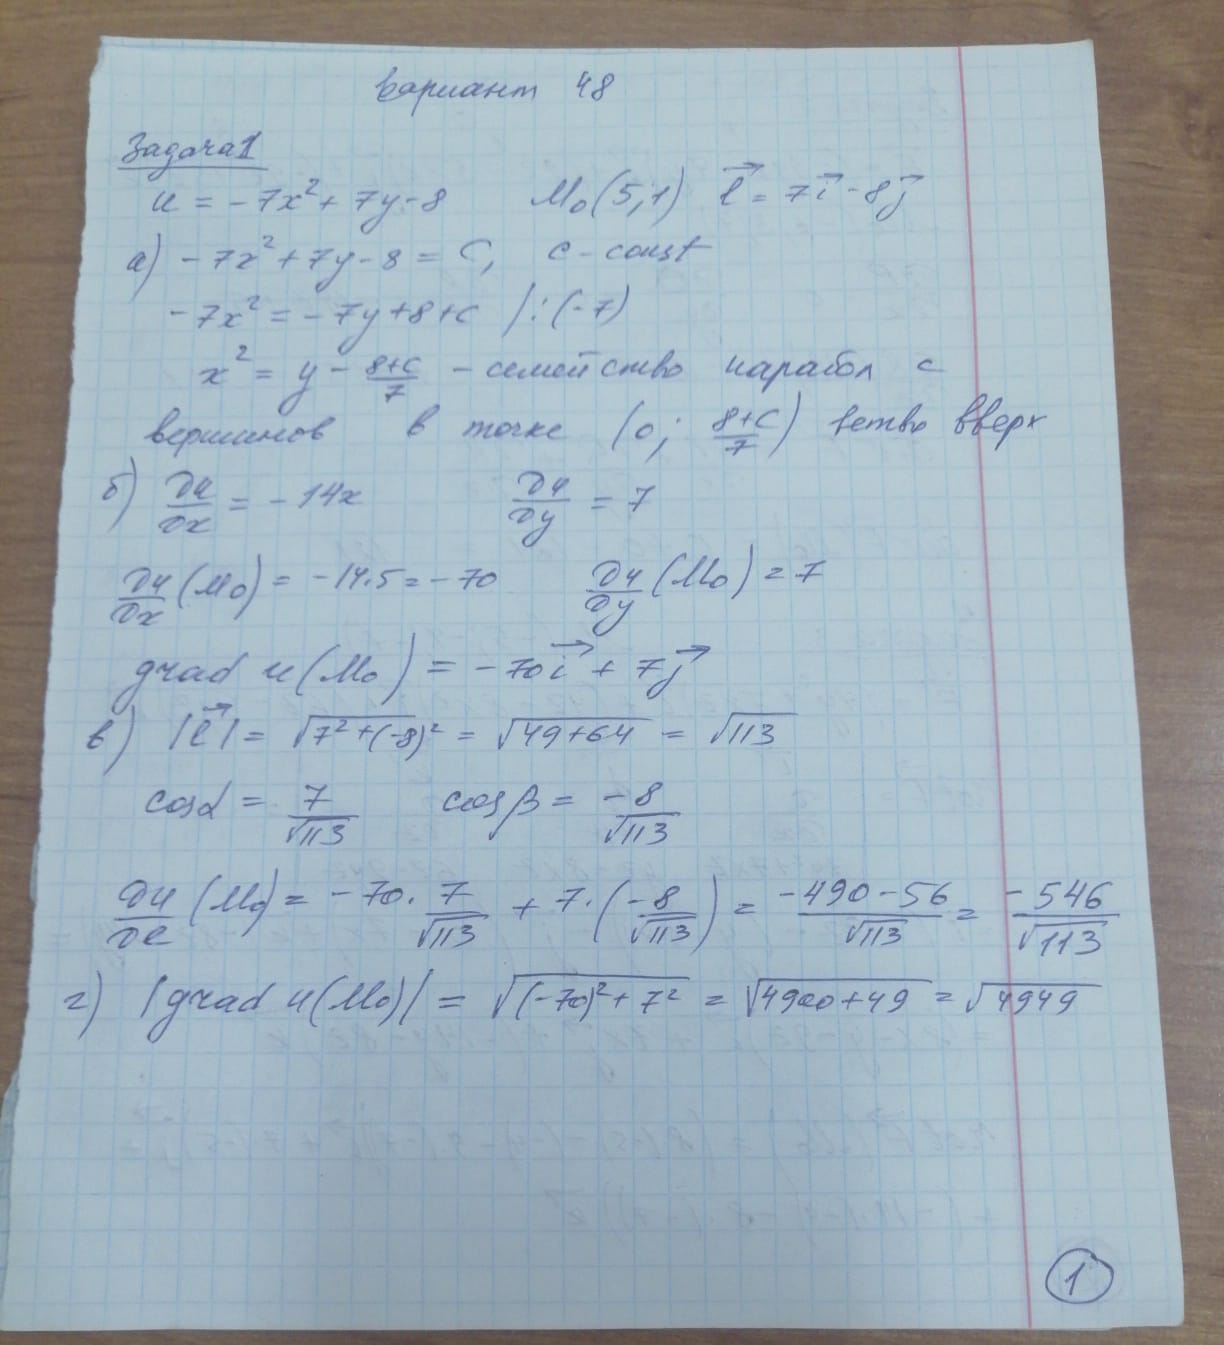 вариант 48
Задача 1
u = -7x² + 7y - 8 M₀(5,1) l⃗ = 7i⃗ - 8j⃗
а) -7x² + 7y - 8 = C, c - const
-7x² = -7y + 8 + c /:(-7)
x² = y - (8+c)/7 - семейство парабол с
вершинов в точке (0; (8+c)/7) ветви вверх
б) ∂u/∂x = -14x ∂u/∂y = 7
∂u/∂x (M₀) = -14.5 = -70 ∂u/∂y (M₀) = 7
grad u(M₀) = -70i⃗ + 7j⃗
в) |l⃗| = √(7² + (-8)²) = √(49+64) = √113
cosα = 7/√113 cosβ = -8/√113
∂u/∂l (M₀) = -70 · 7/√113 + 7·(-8/√113) = (-490-56)/√113 = -546/√113
г) |grad u(M₀)| = √((-70)² + 7²) = √(4900+49) = √4949
1